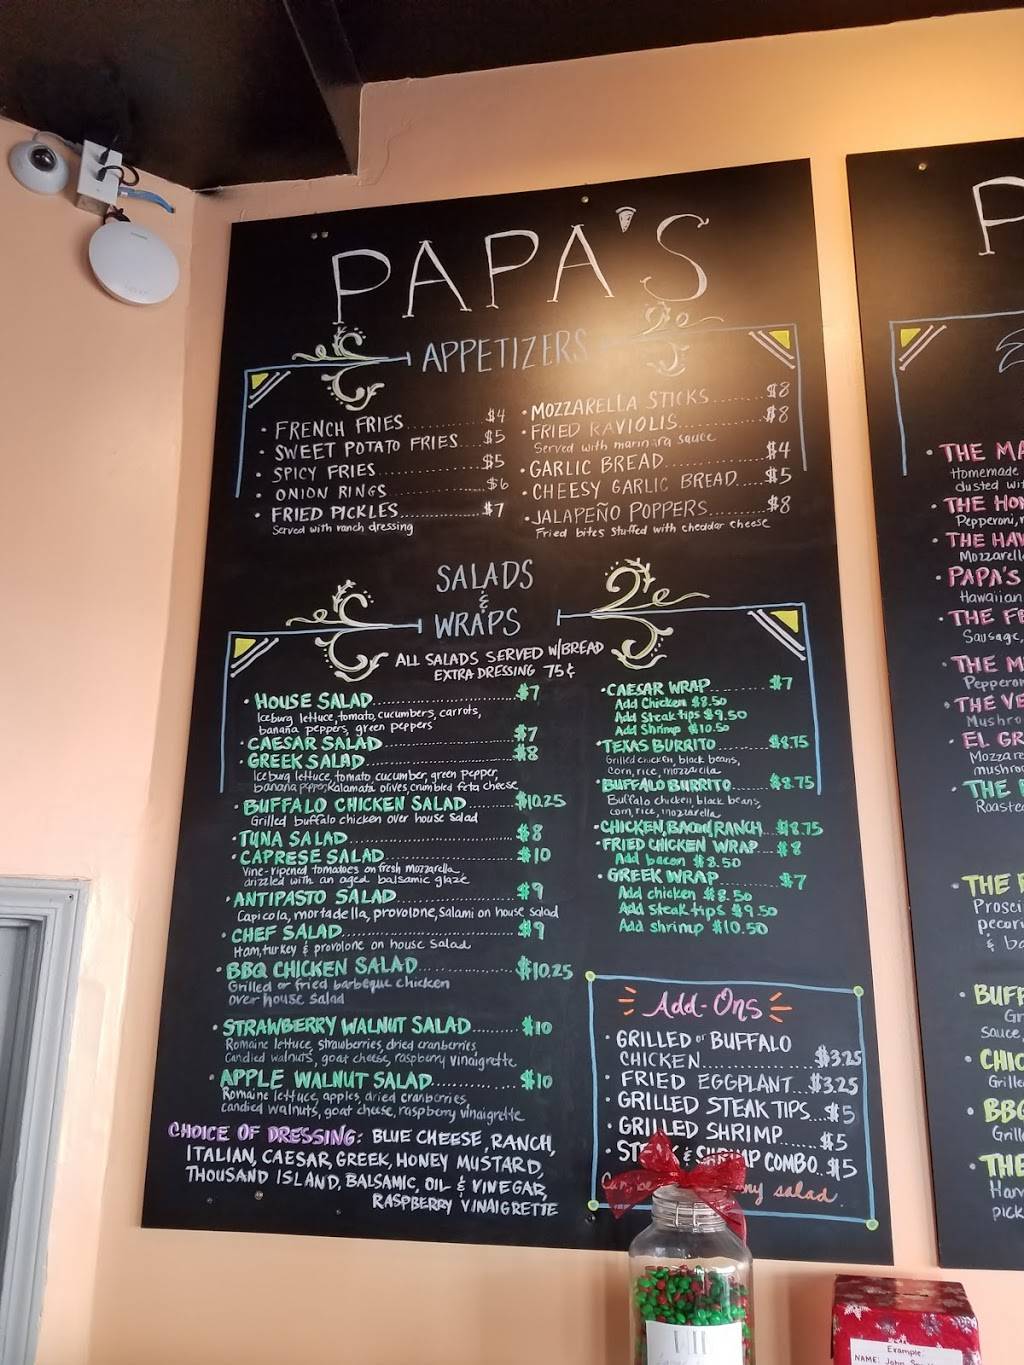 PAPA'S
APPETIZERS
• FRENCH FRIES.......... $4
• SWEET POTATO FRIES... $5
• SPICY FRIES............ $5
• ONION RINGS............ $6
• FRIED PICKLES............ $7
Served with ranch dressing
• MOZZARELLA STICKS....... $8
• FRIED RAVIOLIS............ $8
Served with marinara sauce
• GARLIC BREAD............ $4
• CHEESY GARLIC BREAD..... $5
• JALAPEÑO POPPERS........ $8
Fried bites stuffed with cheddar cheese
SALADS
&
WRAPS
ALL SALADS SERVED W/BREAD
EXTRA DRESSING 75¢
• HOUSE SALAD............ $7
Iceburg lettuce, tomato, cucumbers, carrots,
banana peppers, green peppers
• CAESAR SALAD............ $7
• GREEK SALAD............ $8
Iceburg lettuce, tomato, cucumber, green pepper,
banana pepper, kalamata olives, crumbled feta cheese
• BUFFALO CHICKEN SALAD...... $10.25
Grilled buffalo chicken over house salad
• TUNA SALAD............ $8
• CAPRESE SALAD............ $10
Vine-ripened tomatoes on fresh mozzarella,
drizzled with an aged balsamic glaze
• ANTIPASTO SALAD............ $9
Capicola, mortadella, provolone, salami on house salad
• CHEF SALAD............ $9
Ham, turkey & provolone on house salad
• BBQ CHICKEN SALAD............ $10.25
Grilled or fried barbeque chicken
over house salad
• STRAWBERRY WALNUT SALAD........ $10
Romaine lettuce, strawberries, dried cranberries,
candied walnuts, goat cheese, raspberry vinaigrette
• APPLE WALNUT SALAD............ $10
Romaine lettuce, apples, dried cranberries,
candied walnuts, goat cheese, raspberry vinaigrette
CHOICE OF DRESSING: BLUE CHEESE, RANCH,
ITALIAN, CAESAR, GREEK, HONEY MUSTARD,
THOUSAND ISLAND, BALSAMIC, OIL & VINEGAR,
RASPBERRY VINAIGRETTE
• CAESAR WRAP........ $7
Add Chicken $8.50
Add Steak tips $9.50
Add Shrimp $10.50
• TEXAS BURRITO........ $8.75
Grilled chicken, black beans,
corn, rice, mozzarella
• BUFFALO BURRITO..... $8.75
Buffalo chicken, black beans,
corn, rice, mozzarella
• CHICKEN, BACON, RANCH... $8.75
• FRIED CHICKEN WRAP... $8
Add bacon $8.50
• GREEK WRAP........ $7
Add chicken $8.50
Add steak tips $9.50
Add shrimp $10.50
Add-Ons
• GRILLED or BUFFALO
CHICKEN............ $3.25
• FRIED EGGPLANT... $3.25
• GRILLED STEAK TIPS... $5
• GRILLED SHRIMP...... $5
• & SHRIMP COMBO.. $5
any salad
P
• THE MA
Homemade
dusted wit
• THE HON
Pepperoni,
• THE HAW
Mozzarell
• PAPA'S
Hawaiian
• THE FE
Sausage,
• THE M
Pepperon
• THE VE
Mushro
• EL GR
Mozzare
mushro
• THE
Roaste
• THE
Prosci
pecori
& ba
• BUFF
Gr
Sauce,
• CHIC
Grille
• BBQ
Grill
• THE
Ham
pick
Example:
NAME: John